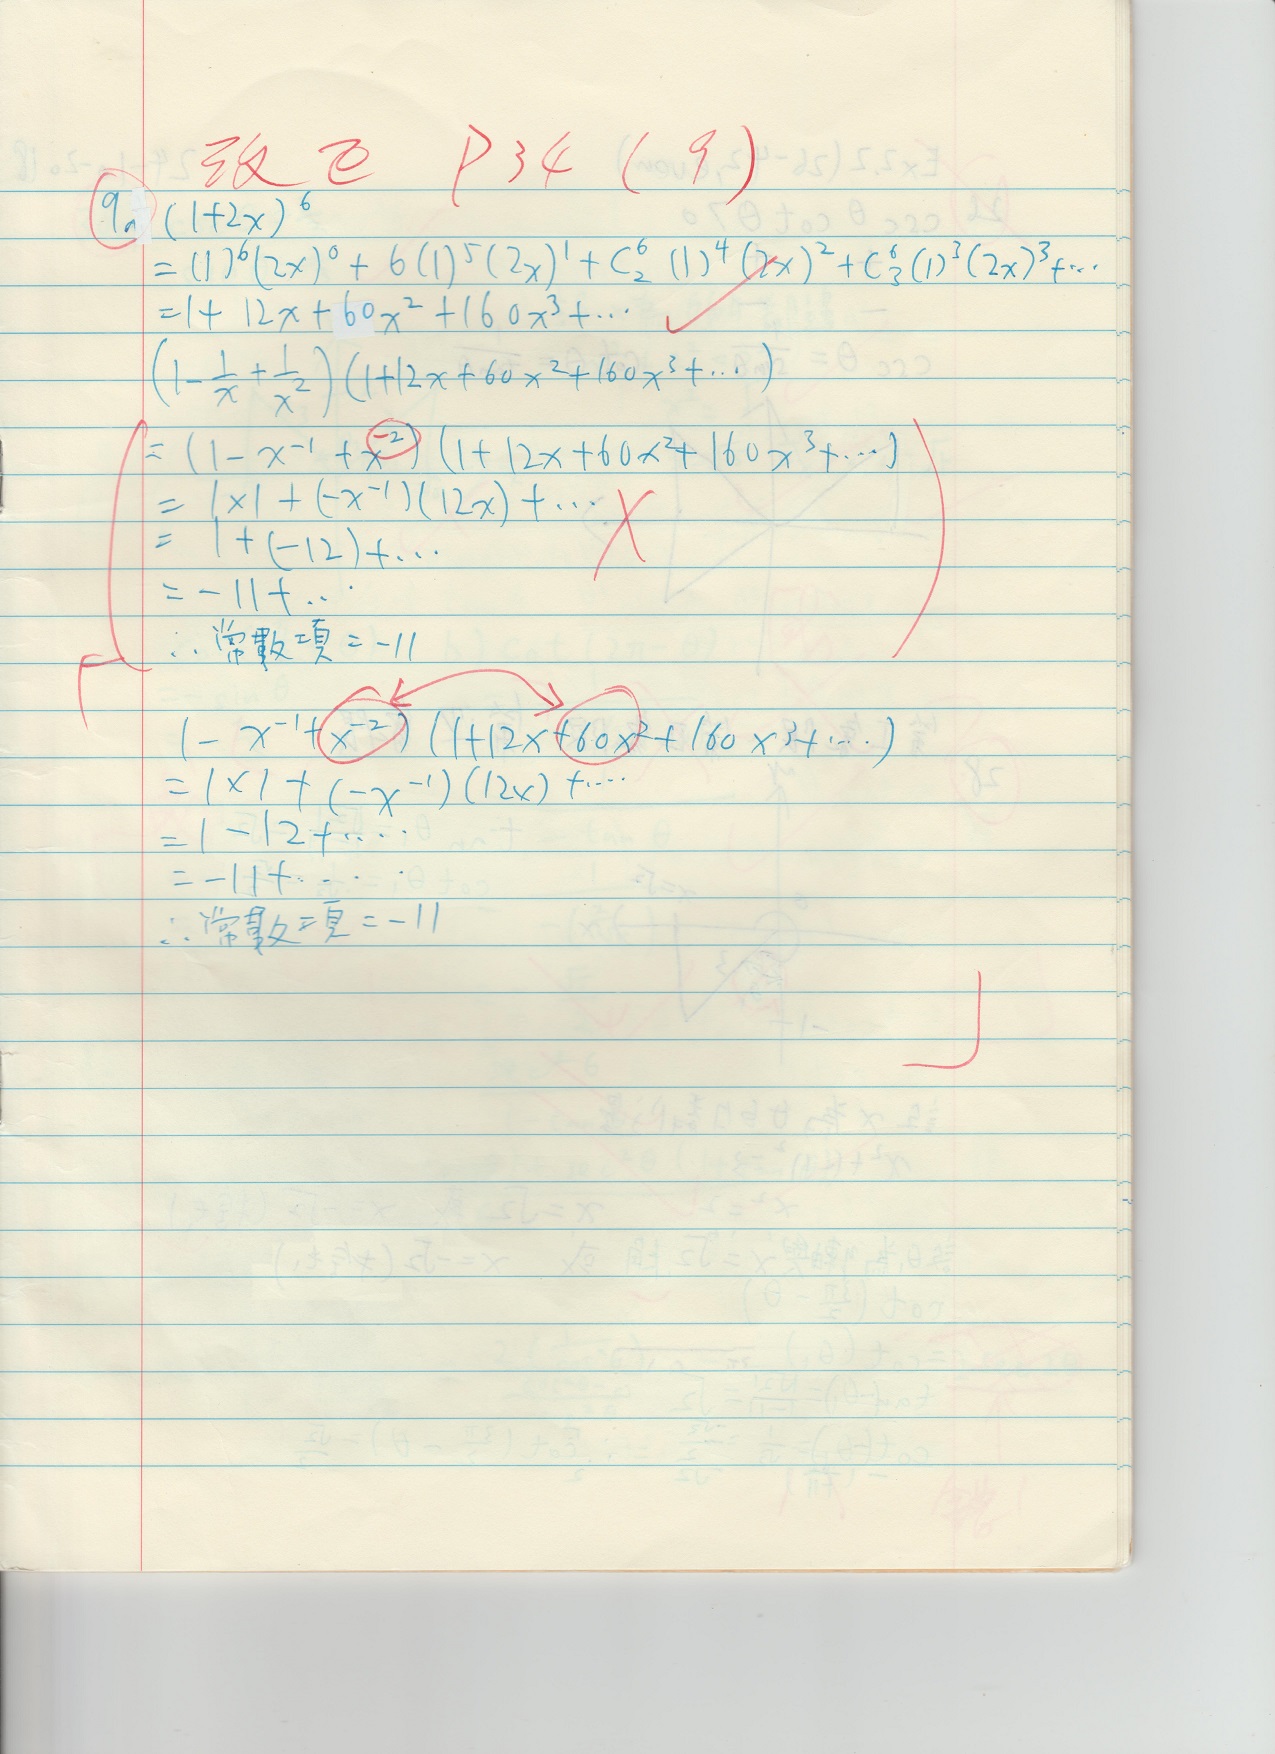 P34 (9)
9a (1+2x)^6
= (1)^6(2x)^0 + 6(1)^5(2x)^1 + C_2^6 (1)^4(2x)^2 + C_3^6(1)^3(2x)^3+...
=1+ 12x+60x^2+160x^3+...
(1-1/x+1/x^2)(1+12x+60x^2+160x^3+...)
= (1-x^-1+x^-2)(1+12x+60x^2+160x^3+...)
= 1×1+(-x^-1)(12x)+...
= 1+(-12)+...
= -11+...
∴常數項=-11
(1-x^-1+x^-2)(1+12x+60x^2+160x^3+...)
= 1×1+(-x^-1)(12x)+...
= 1-12+...
= -11+...
∴常數項=-11